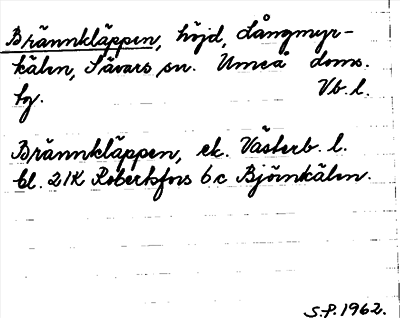 Brännkläppen, höjd, Långmyr-
kälen, Sävars sn. Umeå doms.
hg. Vb. l.
Brännkläppen, ek. Västerb. l.
bl. 21K Robertsfors 6c Björnkälen.
S.P. 1962.